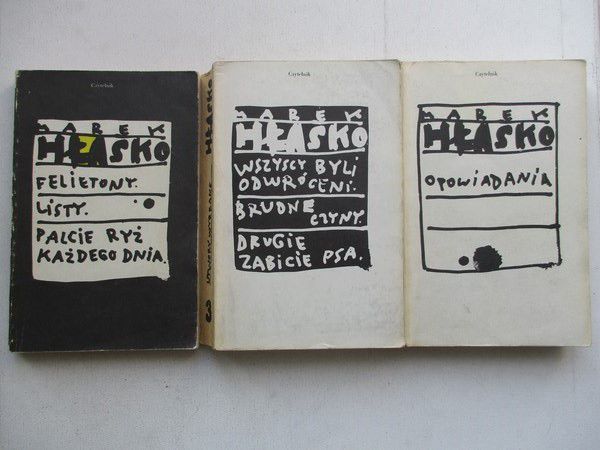 Czytelnik
MAREK
HŁASKO
FELIETONY.
LISTY.
PALCIE RYŻ
KAŻDEGO DNIA.
3 UTWORY WYBRANE HŁASKO
Czytelnik
MAREK
HŁASKO
WSZYSCY BYLI
ODWRÓCENI.
BRUDNE
CZYNY.
DRUGIE
ZABICIE PSA.
Czytelnik
MAREK
HŁASKO
OPOWIADANIA